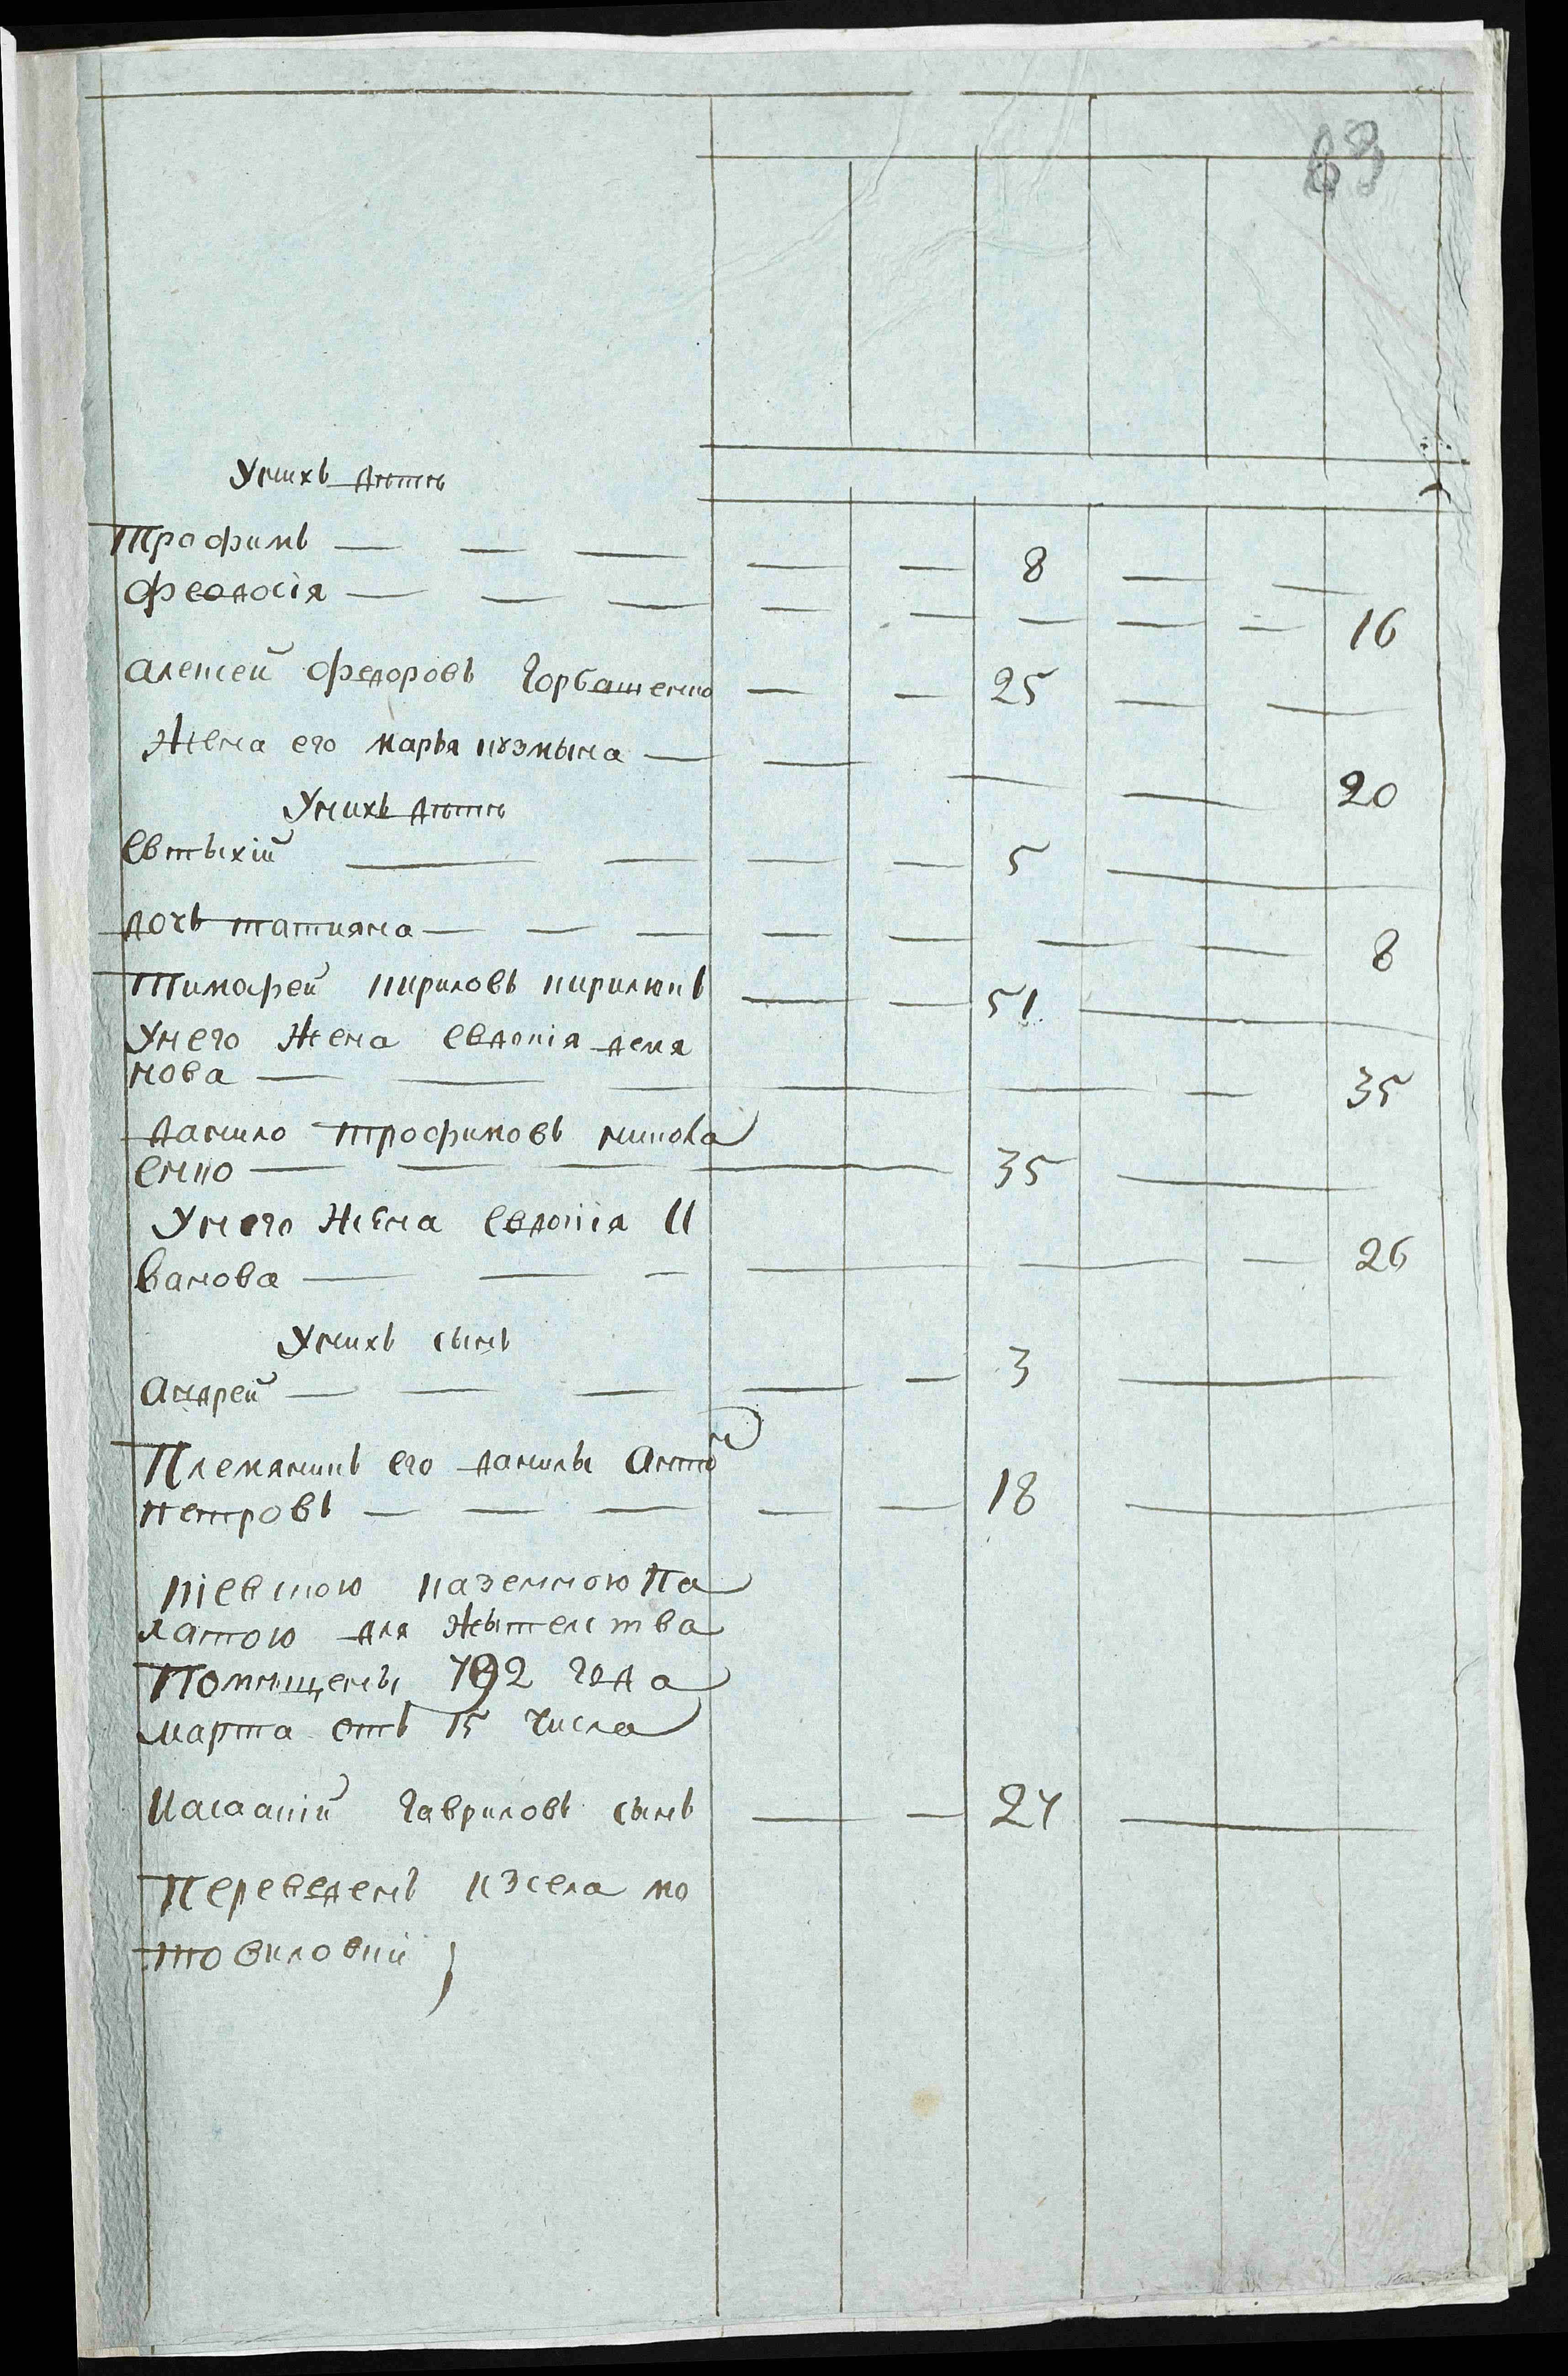 63
Унихъ дѣти
Трофимъ — — — — — 8 — —
Феодосія — — — — — — — — 16
Алексей Федоровъ Горбашенко — — 25 — —
Жена его Марья Кузмына — — — — 20
Унихъ дѣти
Евтыхій — — — — 5 —
дочь татияна — — — — — — — 8
Тимофей Кириловъ Кирилюкъ — — 51 —
Унего Жена Евдокія демя
нова — — — — — — 35
данило трофимовъ
енко — — — — 35 —
Унего Жена Евдокія И
ванова — — — — — — 26
Унихъ сынъ
Андрей — — — — — 3 —
Племянникъ его данилы Антон
петровъ — — — — — 18 —
Кіевскою Казенною Па
латою для Жытелства
Помѣщены 792 года
марта отъ 15 числа
Гавриловъ сынъ — — 24 —
Переведенъ изсела мо
товиловки